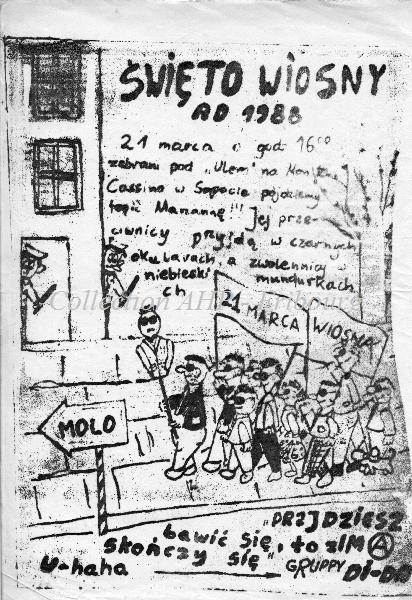 ŚWIĘTO WIOSNY
AD 1988
21 marca o god 16⁰⁰
zebrani pod „Ulem" na Monte
Cassino w Sopocie pójdziemy
topić Marzannę!!! Jej prze-
ciwnicy przyjdą w czarnych
okularach, a zwolennicy w
niebieski mundurkach
ch
Collection AHP - Fribourg
21 MARCA WIOSNA
MOLO
„PRZJDZIESZ
bawić się, to zIMA
skończy się"
U-haha GRUPPY Di-Da